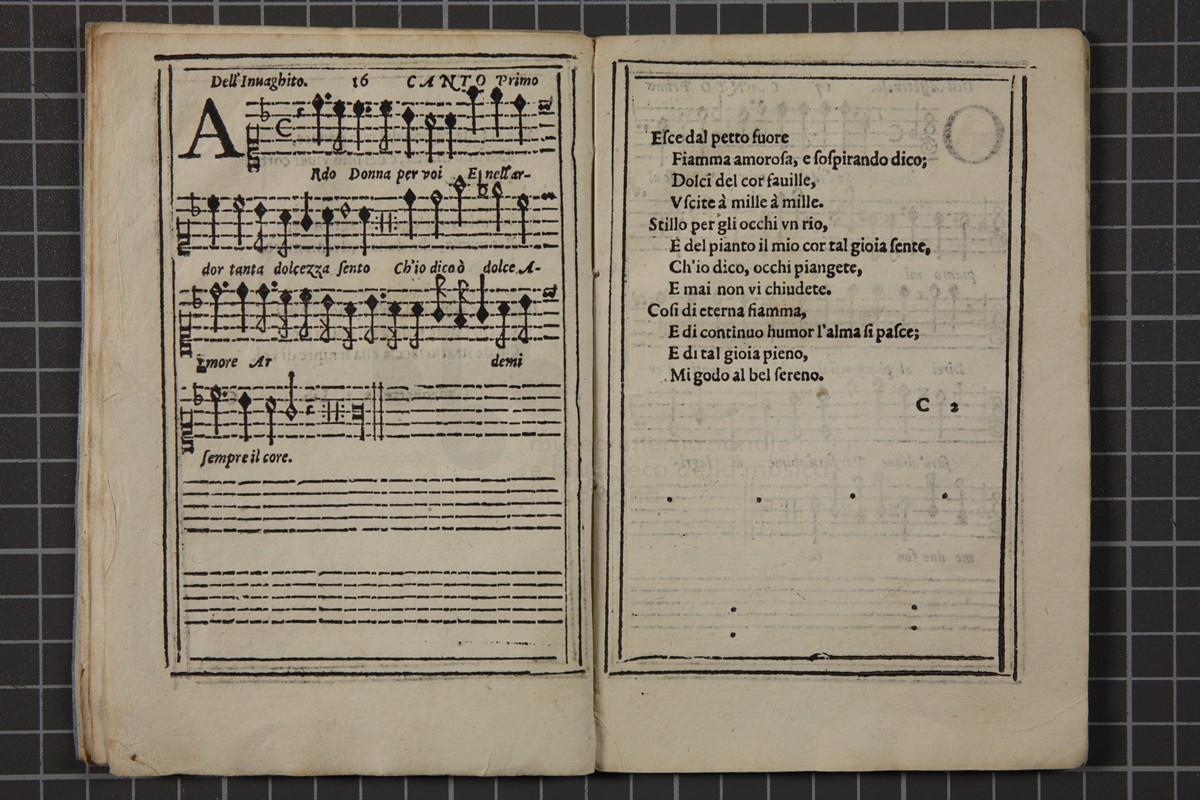 Dell'Inuaghito. 16 CANTO Primo
A
Rdo Donna per voi E nell'ar-
dor tanta dolcezza sento Ch'io dico ò dolce A-
more Ar demi
sempre il core.
Esce dal petto fuore
Fiamma amorosa, e sospirando dico;
Dolci del cor fauille,
Vscite à mille à mille.
Stillo per gli occhi vn rio,
E del pianto il mio cor tal gioia sente,
Ch'io dico, occhi piangete,
E mai non vi chiudete.
Cosi di eterna fiamma,
E di continuo humor l'alma si pasce;
E di tal gioia pieno,
Mi godo al bel sereno.
C 2